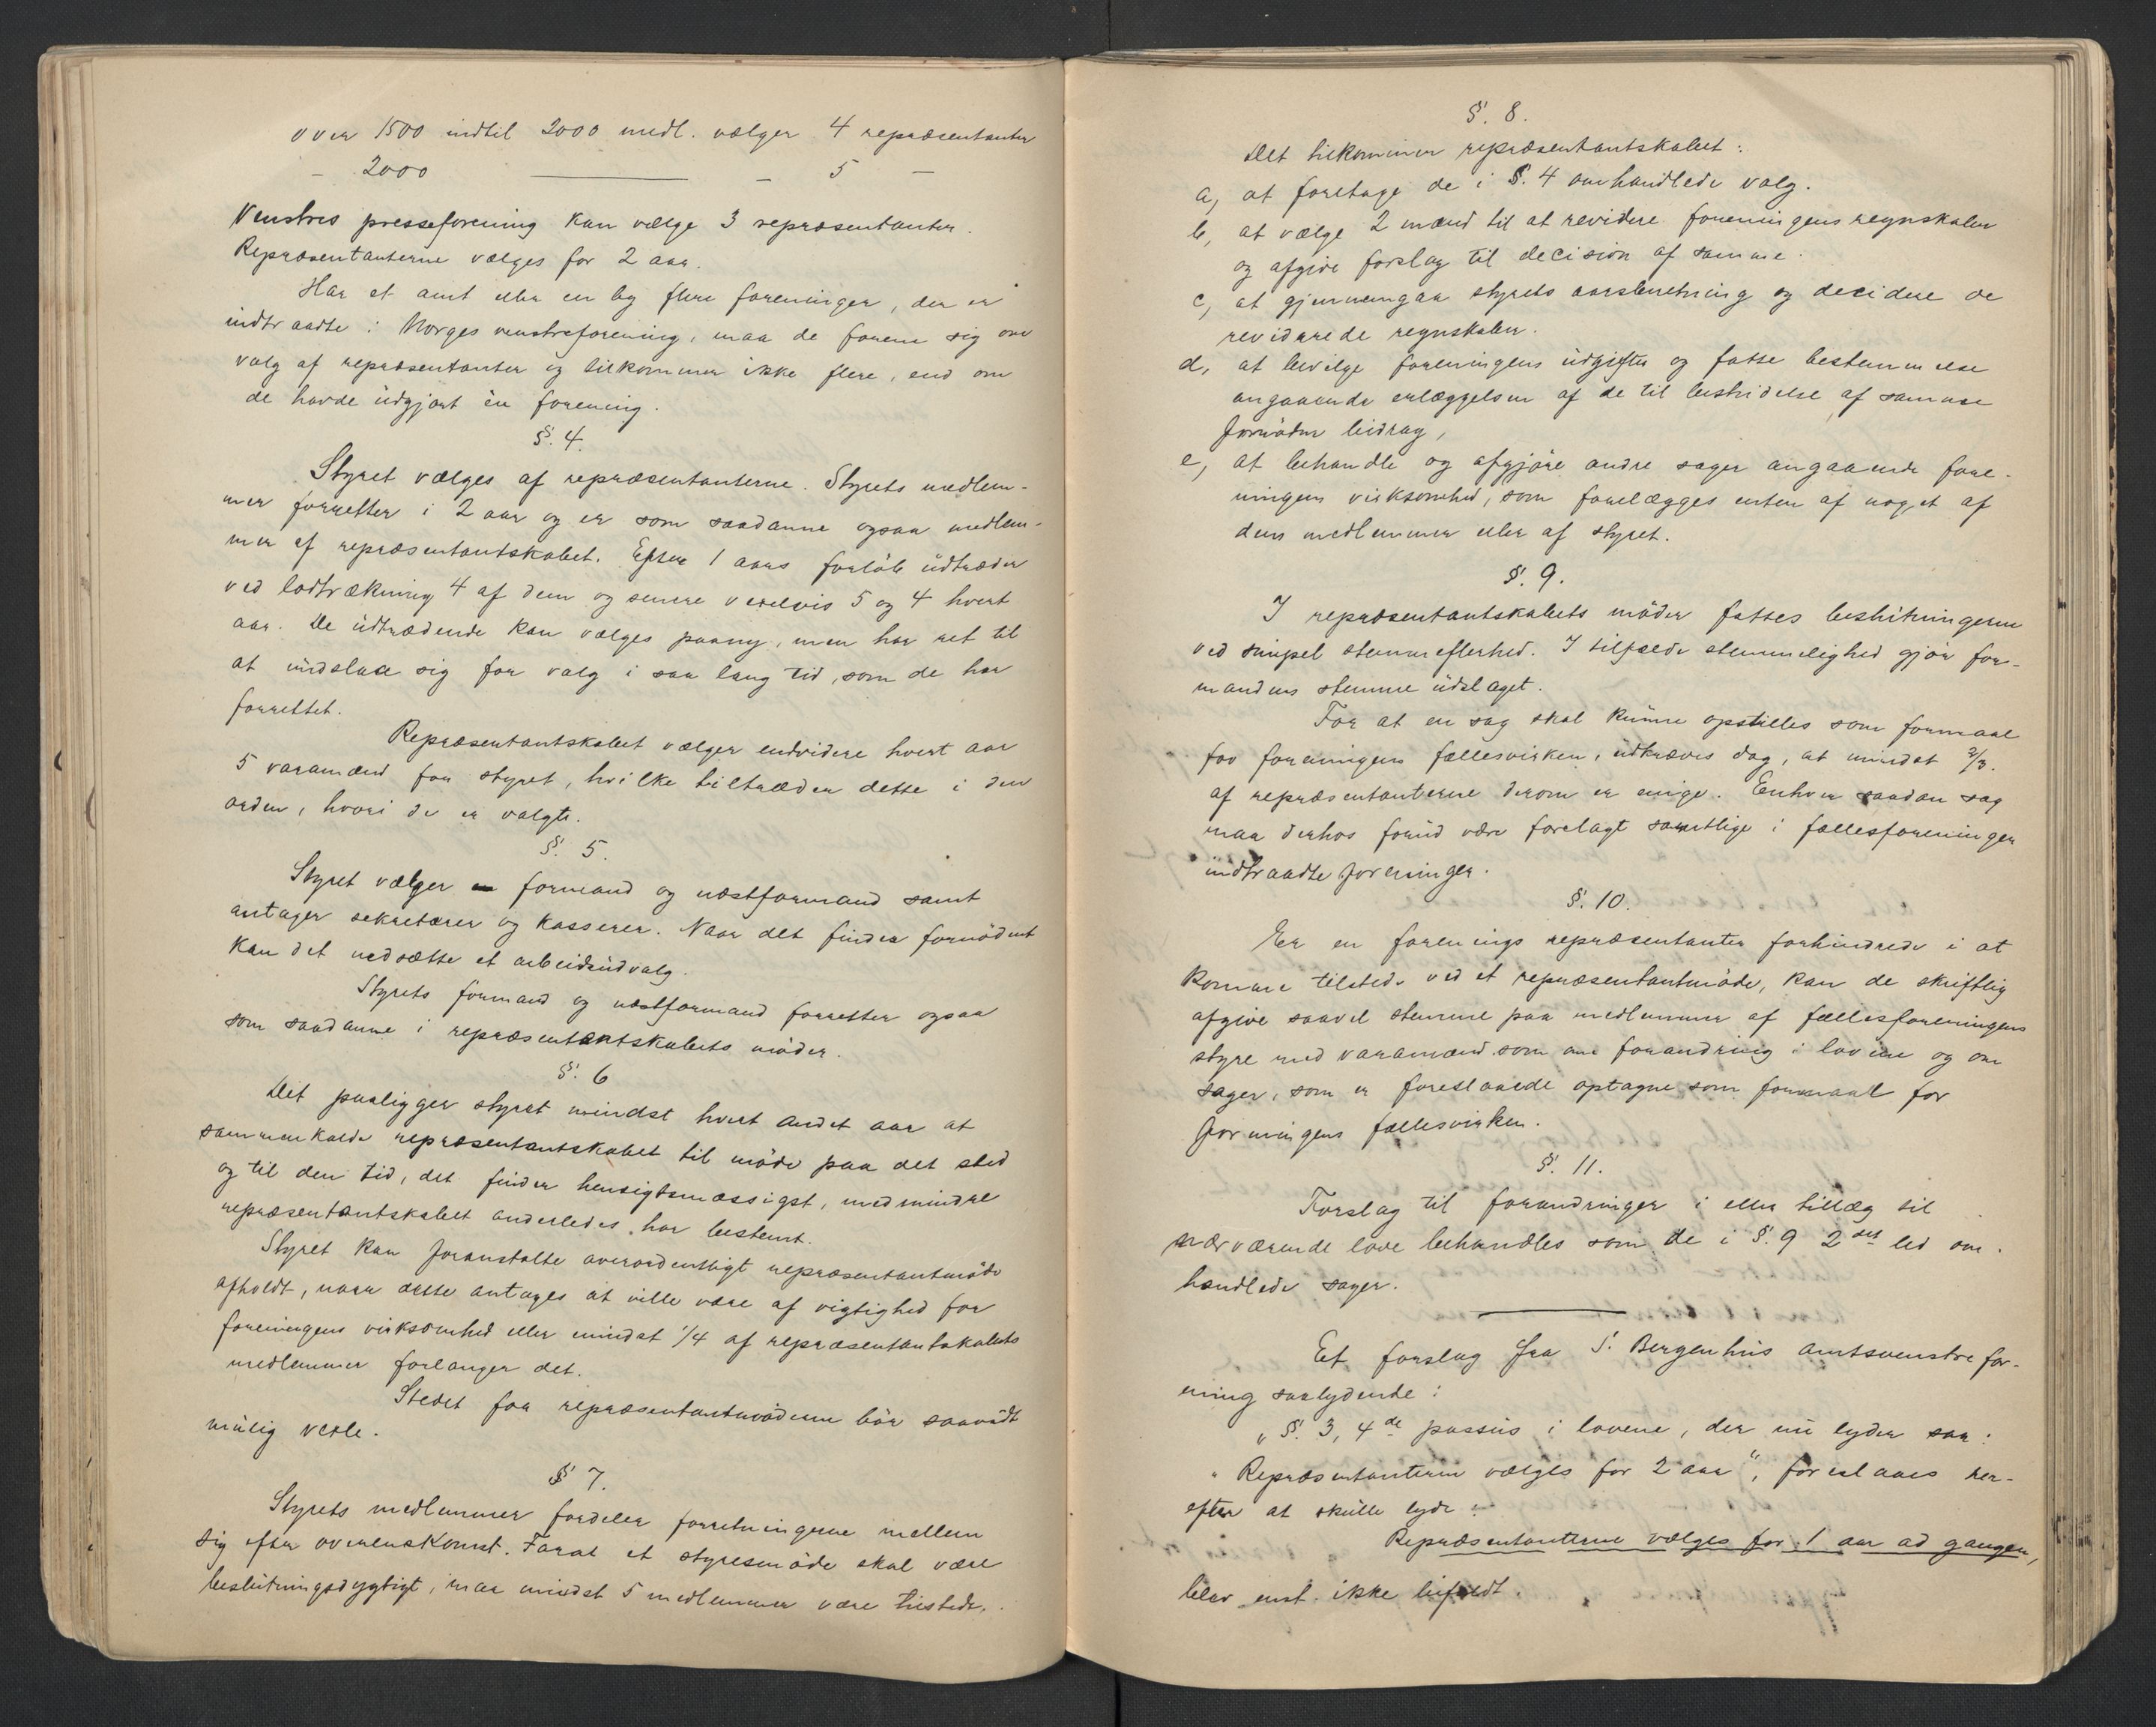 over 1500 indtil 2000 medl. vælger 4 repræsentanter
– 2000 ——— – 5 –
Venstres presseforening kan vælge 3 repræsentanter.
Repræsentanterne vælges for 2 aar.
Har et amt eller en by flere foreninger, der er
indtraadte i Norges venstreforening, maa de forene sig om
valg af repræsentanter og tilkommer ikke flere, end om
de havde üdgjort én forening.
§. 4.
Styret vælges af repræsentanterne. Styrets medlem-
mer forretter i 2 aar og er som saadanne ogsaa medlem-
mer af repræsentantskabet. Efter 1 aars forløb üdtræder
ved lodtrækning 4 af dem og senere vexelvis 5 og 4 hvert
aar. De üdtrædende kan vælges paany, men har ret til
at undslaa sig for valg i saa lang tid, som de har
forrettet.
Repræsentantskabet vælger endvidere hvert aar
5 varamænd for styret, hvilke tiltræder dette i den
orden, hvori de er valgte.
§. 5.
Styret vælger formand og næstformand samt
antager sekretærer og kasserer. Naar det finder fornödent
kan det nedsætte et arbeidsüdvalg.
Styrets formand og næstformand forretter ogsaa
som saadanne i repræsentantskabets möder.
§. 6
Det paaligger styret mindst hvert andet aar at
sammenkalde repræsentantskabet til möde paa det sted
og til den tid, det finder hensigtsmæssigst, medmindre
repræsentantskabet anderledes har bestemt.
Styret kan foranstalte overordentligt repræsentantmöde
afholdt, naar dette antages at ville være af vigtighed for
foreningens virksomhed eller mindst 1/4 af repræsentantskabets
medlemmer forlanger det.
Stedet for repræsentantmöderne bör saavidt
mülig vexle.
§ 7.
Styrets medlemmer fordeler forretningerne mellem
sig efter overenskomst. Forat et styresmöde skal være
beslutningsdygtigt, maa mindst 5 medlemmer være tilstede.
§. 8.
Det tilkommer repræsentantskabet:
a, at foretage de i §. 4 omhandlede valg.
b, at vælge 2 mænd til at revidere foreningens regnskaber
og afgive forslag til decision af samme.
c, at gjennemgaa styrets aarsberetning og decidere de
reviderede regnskaber.
d, at bevilge foreningens üdgifter og fatte bestemmelse
angaaende erlæggelsen af de til bestridelse af samme
fornödne bidrag,
e, at behandle og afgjöre andre sager angaaende fore-
ningens virksomhed, som forelægges enten af noget af
dens medlemmer eller af styret.
§. 9.
I repræsentantskabets möder fattes beslutningerne
ved simpel stemmeflerhed. I tilfælde stemmelighed gjör for-
mandens stemme üdslaget.
For at en sag skal künne opstilles som formaal
for foreningens fællesvirken, üdkræves dog, at mindst 2/3.
af repræsentanterne derom er enige. Enhver saadan sag
maa derhos forüd være forelagt samtlige i fællesforeningen
indtraadte foreninger.
§. 10.
Er en forenings repræsentanter forhindrede i at
komme tilstede ved et repræsentantmöde, kan de skriftlig
afgive saavel stemme paa medlemmer af fællesforeningens
styre med varamænd som om forandring i lovene og om
sager, som er foreslaaede optagne som formaal for
foreningens fællesvirken.
§. 11.
Forslag til forandringer i eller tillæg til
nærværende love behandles som de i §. 9 2det led om-
handlede sager.
Et forslag fra S. Bergenhüs amtsvenstrefor-
ening saalydende:
„§. 3, 4de passüs i lovene, der nü lyder saa:
„Repræsentanterne vælges for 2 aar“, foreslaaes her-
efter at skülle lyde:
Repræsentanterne vælges for 1 aar ad gangen,
blev enst. ikke bifaldt.